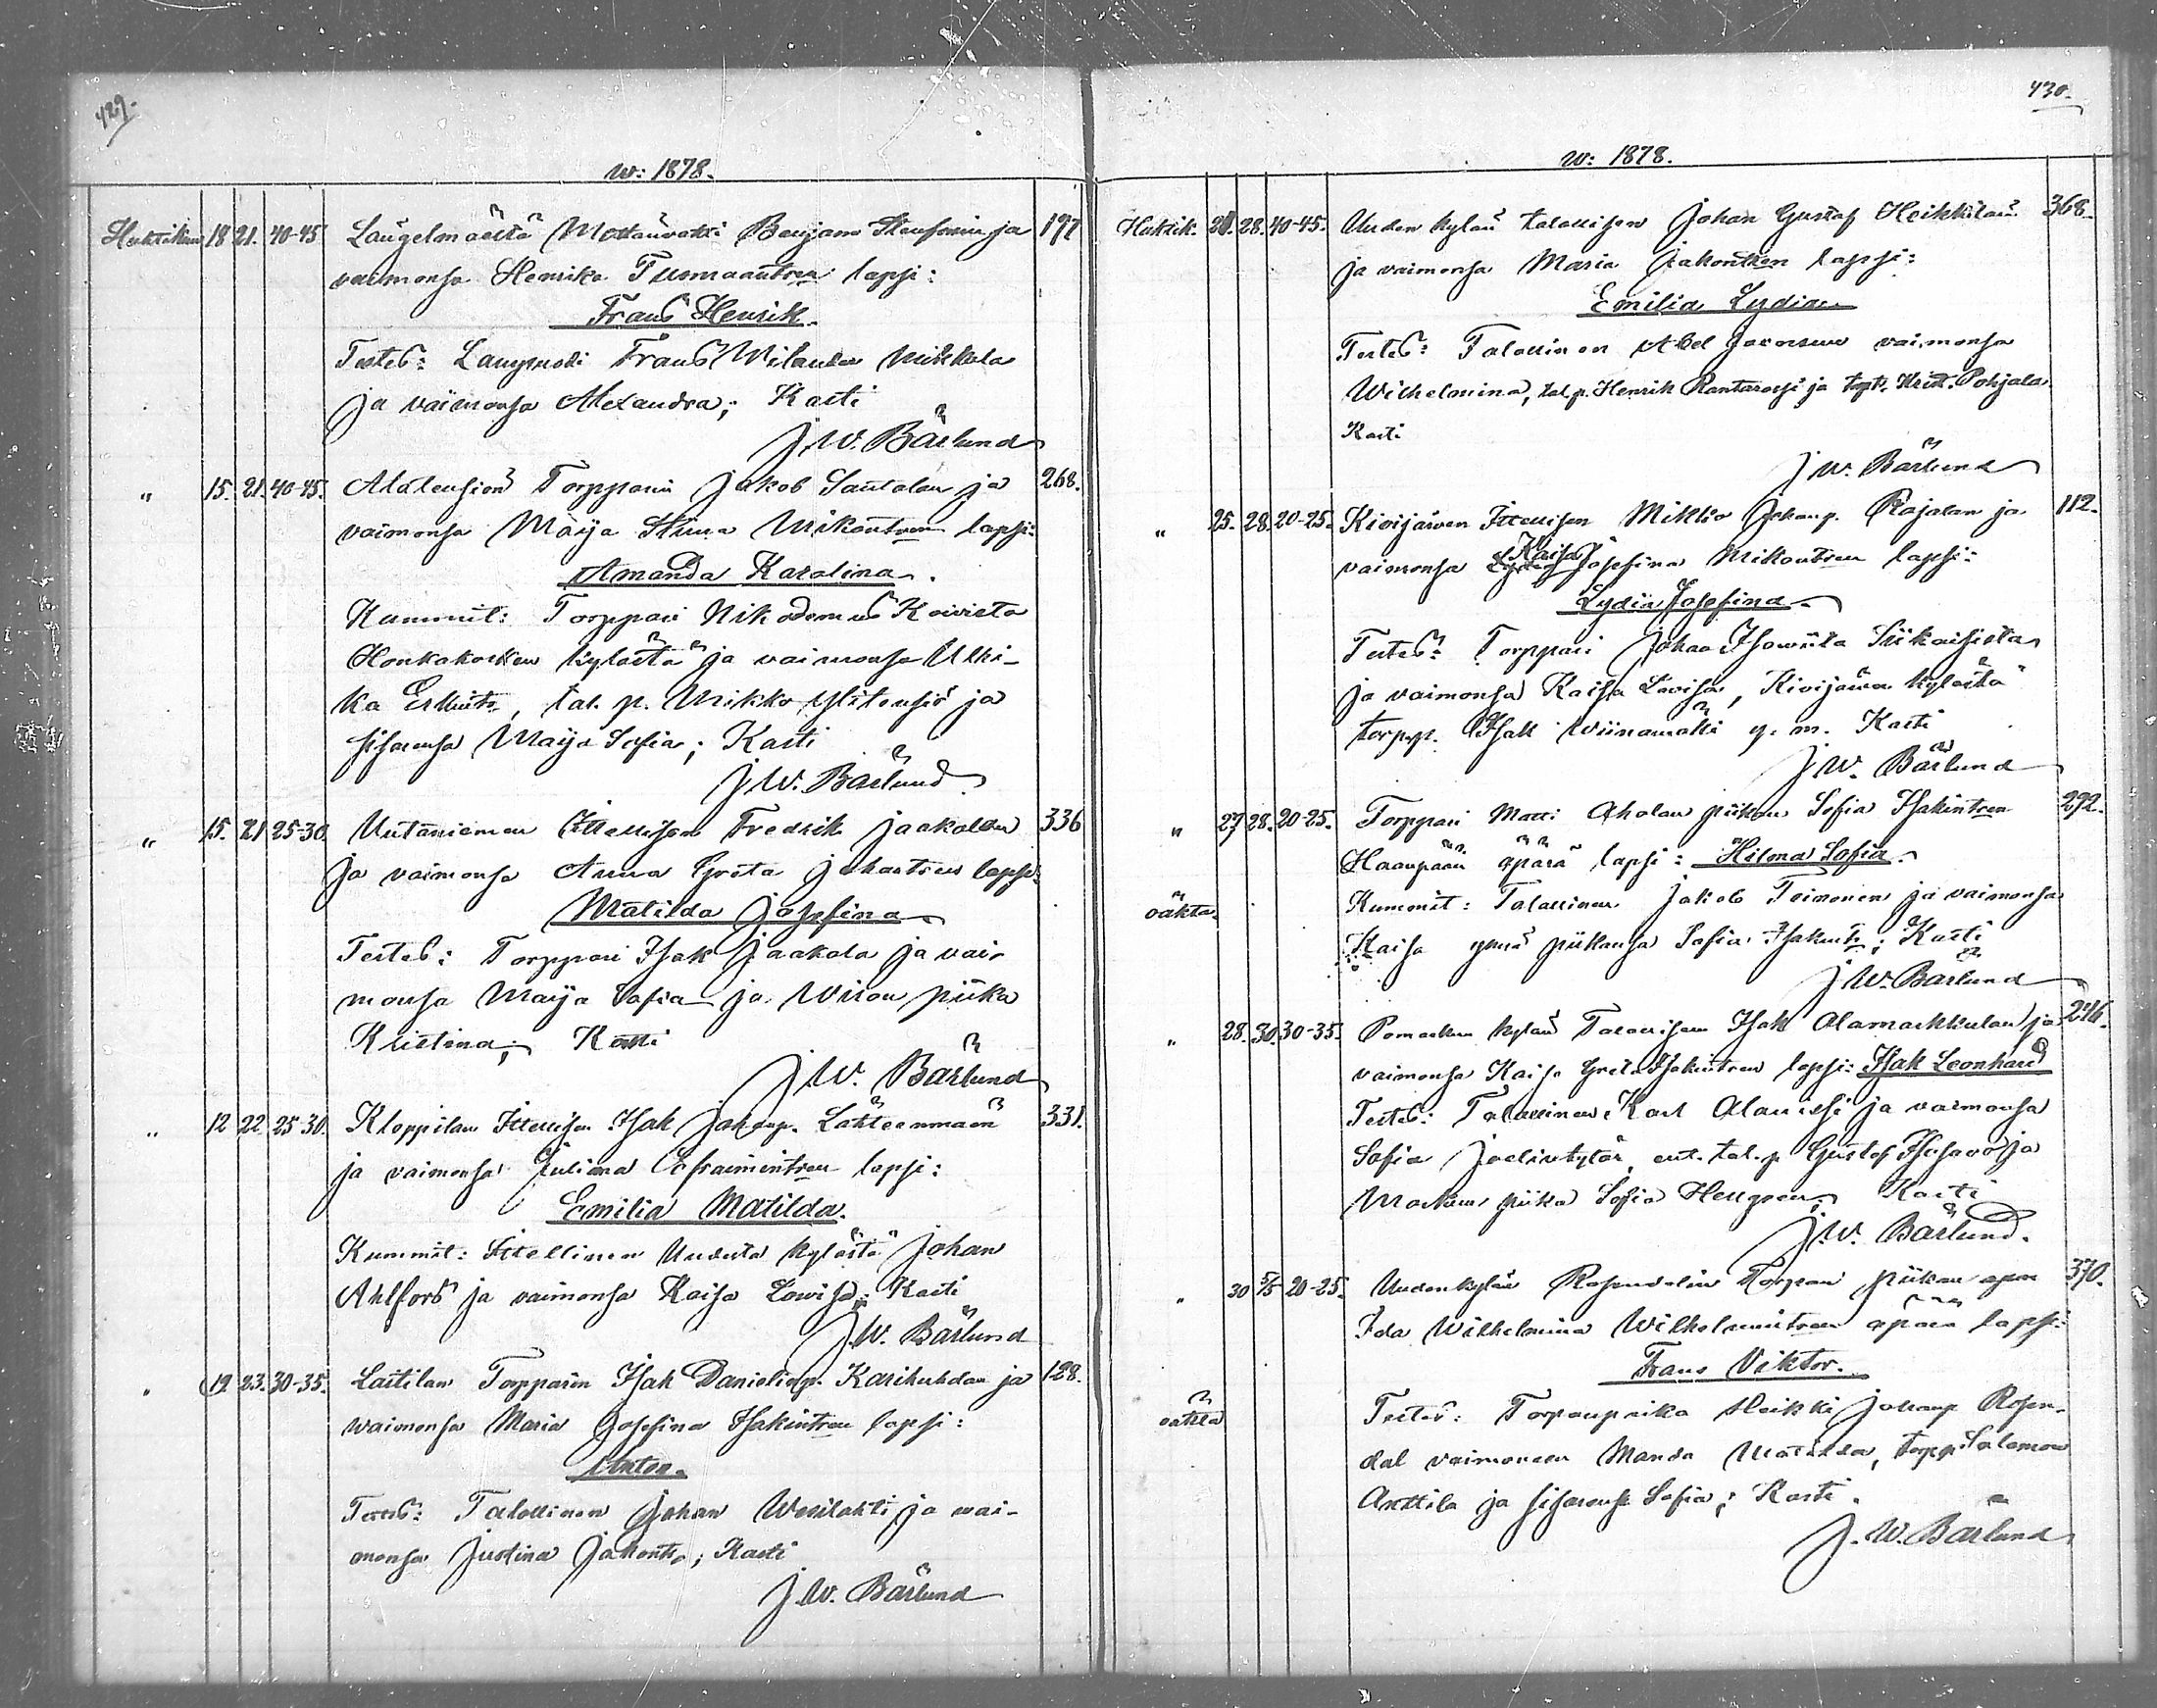 429.
w: 1878.
Huhtikuu 18 21. 40-45 Längelmäestä Benjam ja 197
vaimonsa Henrika lapsi:
Frans Henrik.
Testes: Lampuoti Frans Wilander Mikkola
ja vaimonsa Alexandra; Kasti
J. W. Bärlund
" 15. 21. 40-45. Torpparin Jakob Santalan ja 268.
vaimonsa Maija Stiina Mikontren lapsi:
Amanda Karolina.
Kummit: Torppari Nikodemus Koivisto
Honkakosken kylästä ja vaimonsa Ulri-
ka, tal. p. Mikko ja
sisarensa Maija Sofia; Kasti
J. W. Bärlund
" 15. 21 25-30. Uutaniemen Itsellisen Fredrik Jaakolan 336
ja vaimonsa Anna Greta Juhantren lapsi:
Matilda Josefina
Testes: Torppari Isak Jaakola ja vai-
monsa Maija Sofia ja piika
Kristina; Kasti
J. W. Bärlund
" 12 22. 25-30. Kloppilan Itsellisen Isak Johanp. Lähteenmäen 331.
ja vaimonsa Juliana Efraimintren lapsi:
Emilia Matilda.
Kummit: Itsellinen Uudesta kylästä Johan
Ahlfors ja vaimonsa Kaisa Lowisa; Kasti
J. W. Bärlund
" 19. 23. 30-35. Laitilan Torpparin Isak Danielinp. Karihuhdan ja 128.
waimonsa Maria Josefina Isakintren lapsi:
Anton.
Testes: Talollinen Johan Wesilahti ja vai-
monsa Justina Jakontr.; Kasti
J. W. Bärlund
430.
w: 1878.
Huhtik. 28. 40-45. Uuden kylän talollisen Johan Gustaf Heikkilän 368.
ja vaimonsa Maria Jakontren lapsi:
Emilia Lydia
Testes: Talollinen Abel vaimonsa
Wilhelmina, tal. p. Henrik Rantaroosi ja Pohjala.
Kasti
J. W. Bärlund
" 25. 28. 20-25. Kivijärven Itsellisen Mikko Johanp. Rajalan ja 112.
Kaisa
vaimonsa Josefina Mikontren lapsi:
Lydia Josefina
Testes: Torppari Johan Siikaisista
ja vaimonsa Kaisa Lovisa, Kivijärven kylästä
torpp. Isak Wiinamäki y. m. Kasti
J. W. Bärlund
" 27 28. 20-25. Torppari Matti Aholan piikan Sofia Isakintren 292.
Haanpään äpärä lapsi: Hilma Sofia.
Kummit: Talollinen Jakob Toimonen ja vaimonsa
oäkta.
Kaisa ynnä piikansa Sofia Isakintr.; Kasti
J. W. Bärlund
" 28. 30. 30-35. Pomarkun kylän Talollisen Isak Alamarkkulan ja 246.
vaimonsa Kaisa Greta Isakintren lapsi: Isak Leonhard
Testes: Talollinen Karl ja vaimonsa
Sofia, tal. p. Gustaf ja
piika Sofia; Kasti
J. W. Bärlund.
" 30 5/5 20-25. Uudenkylän Rosendalin Torpan piikan 370.
Ida Wilhelmina Wilhelmintren äpärä lapsi:
Frans Viktor.
oäkta
Testes: Torpanpoika Heikki Johanp Rosen-
dal vaimoneen Manda Matilda, torpp. Salomon
Anttila ja sisarensa Sofia; Kasti.
J. W. Bärlund